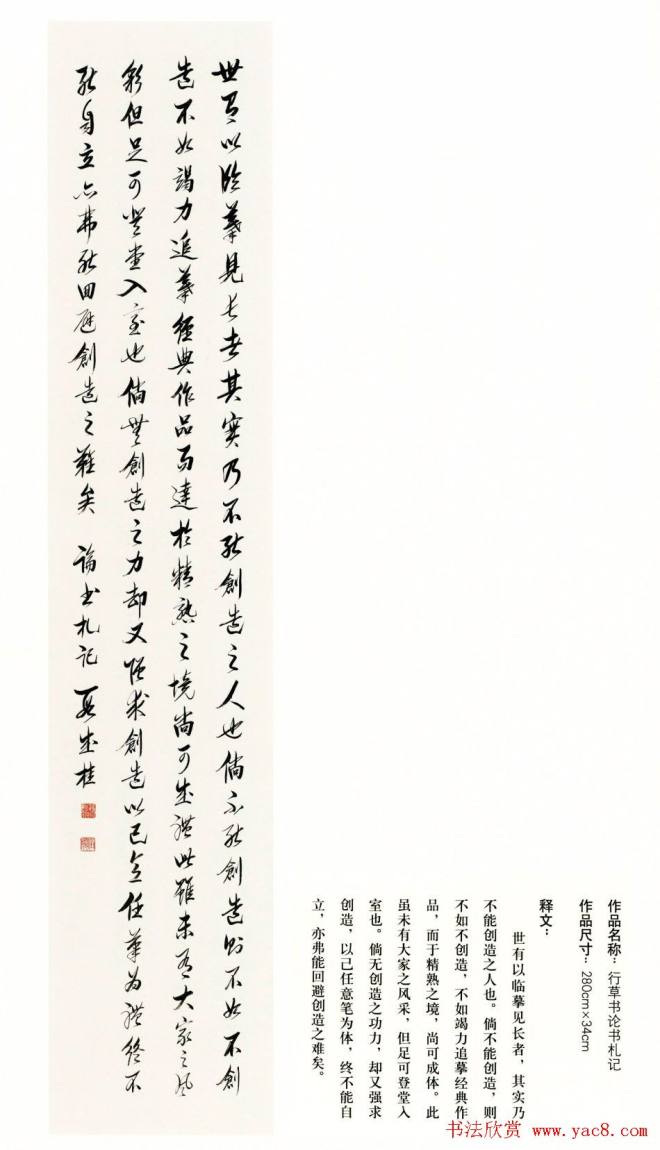 世有以临摹見长者其实乃不能創造之人也倘不能創造則不如不創
造不如竭力追摹經典作品而達於精熟之境尚可成體此雖未有大家之风
彩但足可登堂入室也倘無創造之力却又强求創造以己意任筆为體终不
能自立亦弗能回避創造之難矣 論书札记
作品名称：行草书论书札记
作品尺寸：280cm×34cm
释文：
世有以临摹见长者，其实乃
不能创造之人也。倘不能创造，则
不如不创造，不如竭力追摹经典作
品，而于精熟之境，尚可成体。此
虽未有大家之风采，但足可登堂入
室也。倘无创造之功力，却又强求
创造，以己任意笔为体，终不能自
立，亦弗能回避创造之难矣。
书法欣赏 www.yac8.com